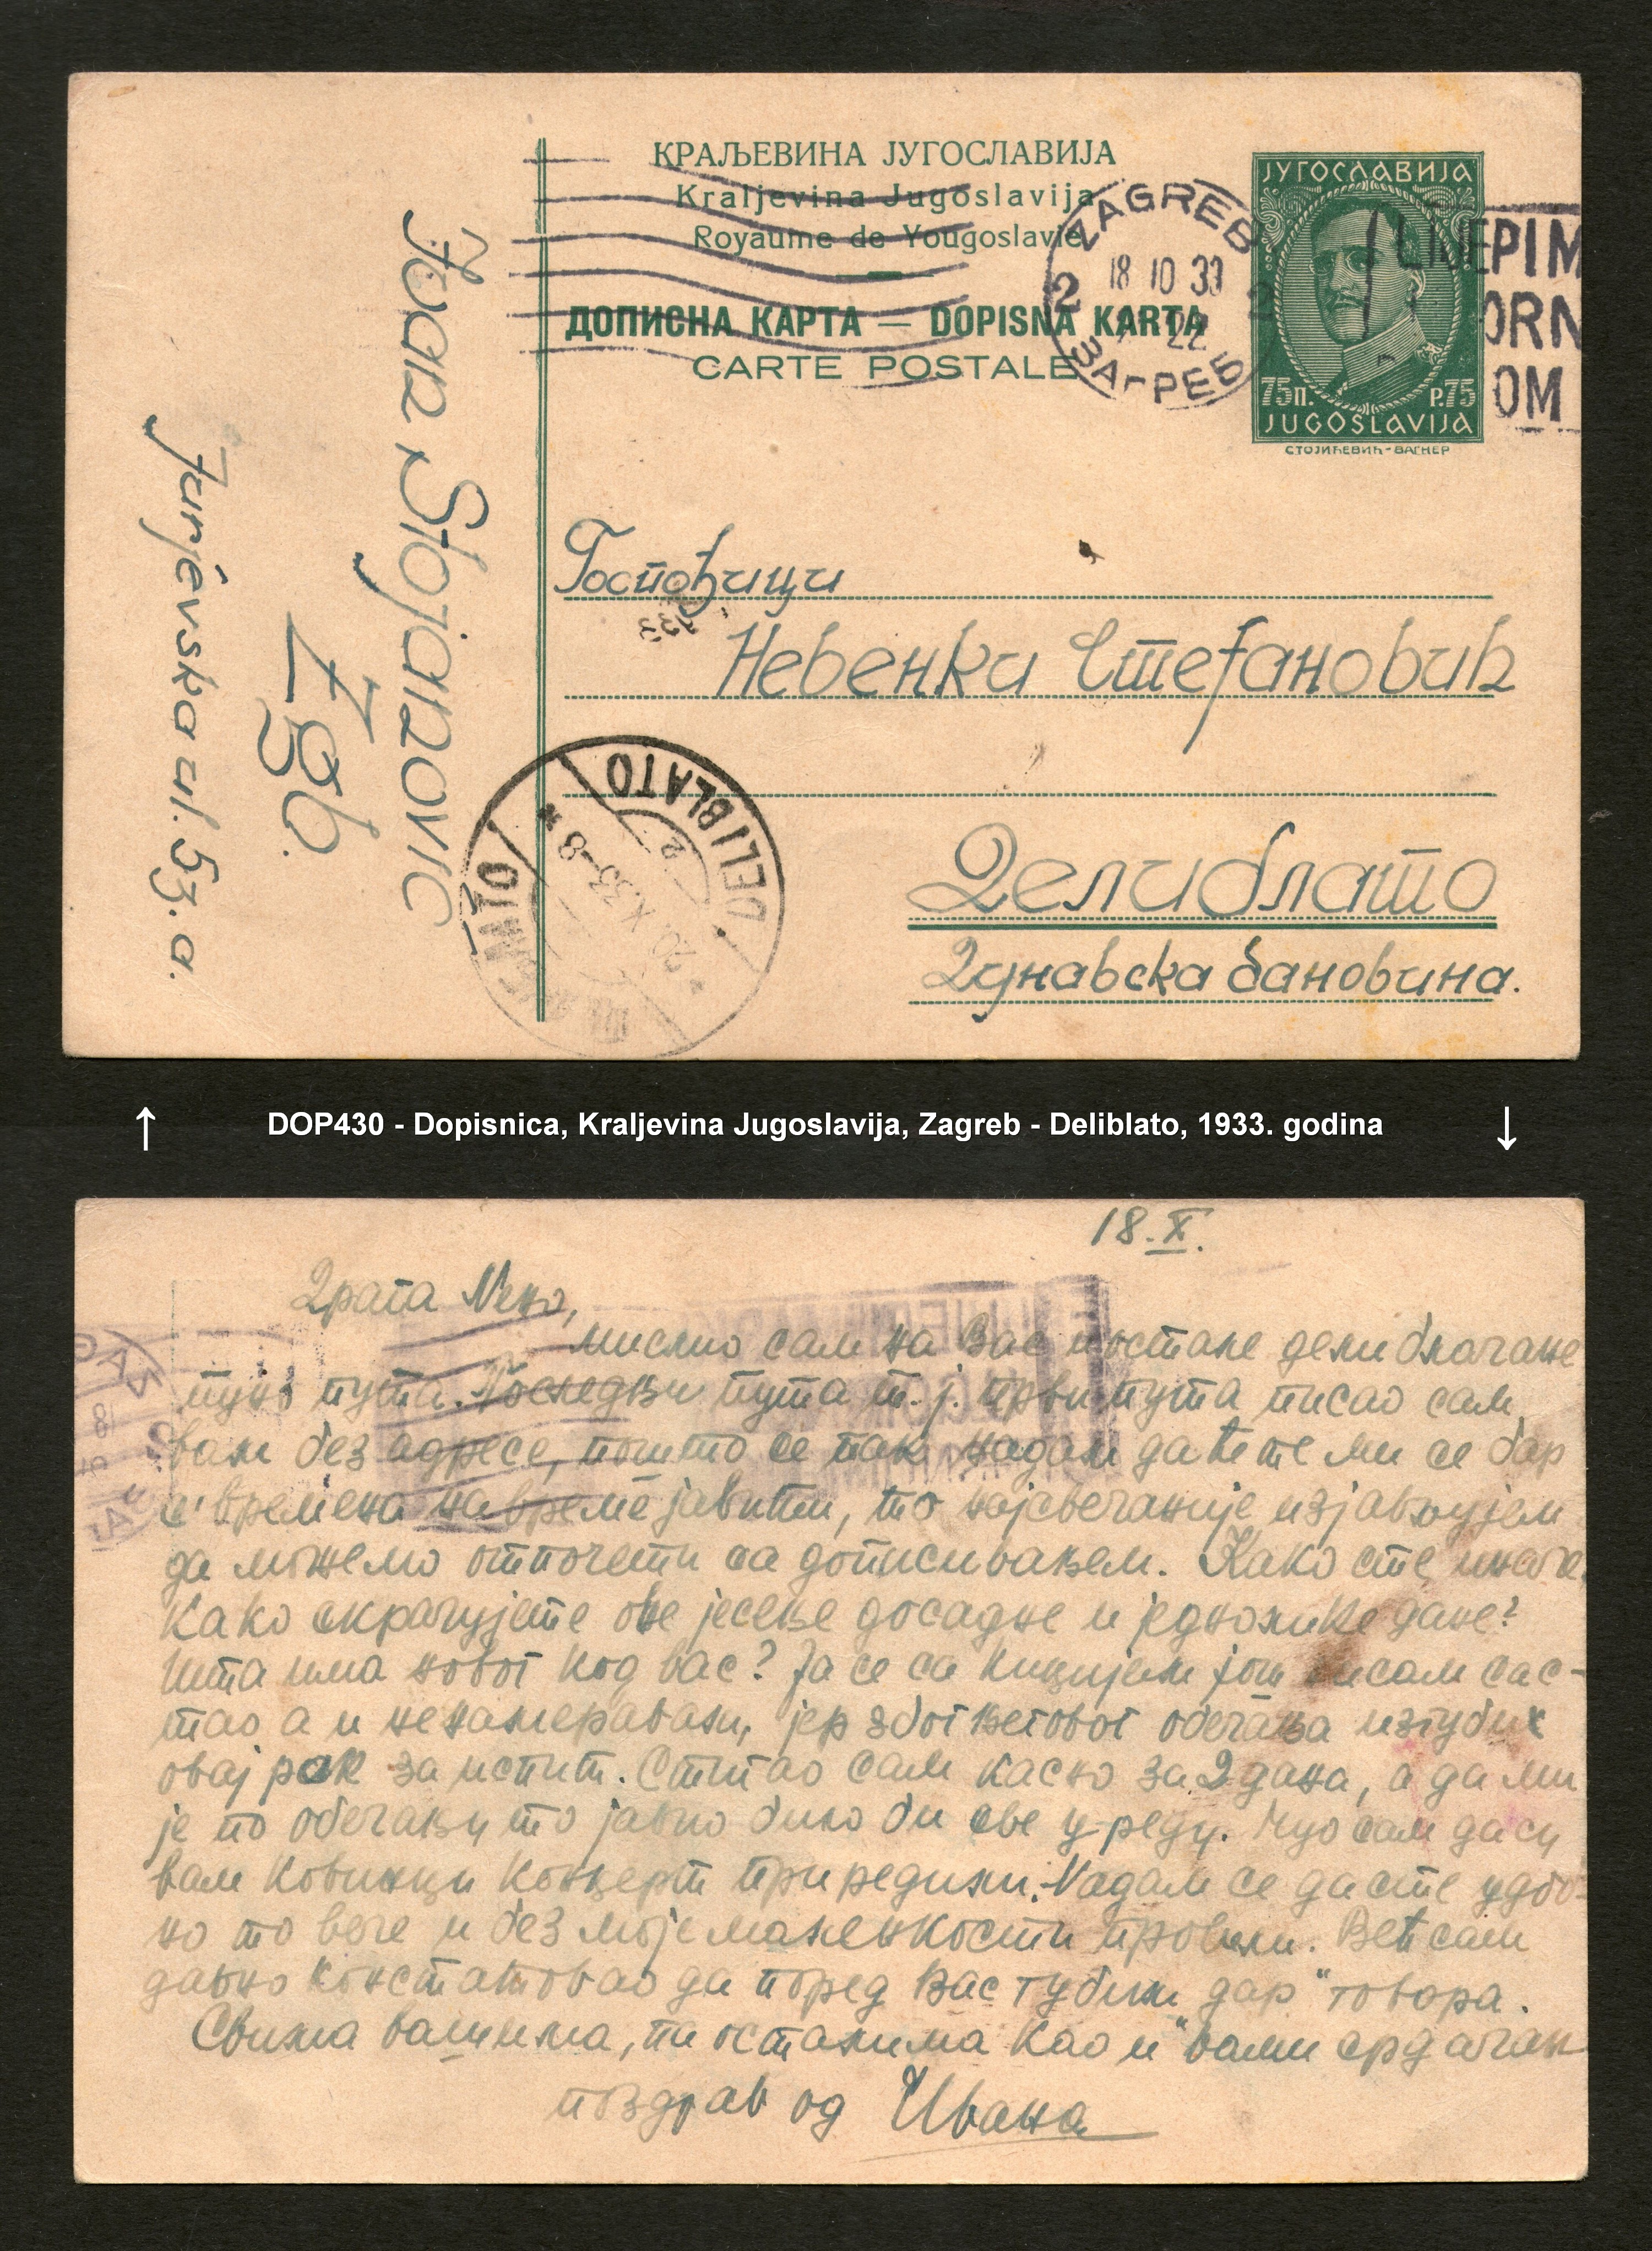 КРАЉЕВИНА ЈУГОСЛАВИЈА
Kraljevina Jugoslavija
Royaume de Yougoslavie
ДОПИСНА КАРТА — DOPISNA KARTA
CARTE POSTALE
ZAGREB
2 18 10 33 2
22
ЗАГРЕБ
ЈУГОСЛАВИЈА
75п. P.75
JUGOSLAVIJA
СТОЈИЋЕВИЋ-ВАГНЕР
LIJEPIM
ORN
OM
Ivan Stojanović
Zgb.
Jurjevska ul. 53. a.
Госпођици
Невенки Стефановић
Делиблато
Дунавска бановина.
DELIBLATO
20. X. 33-8
DOP430 - Dopisnica, Kraljevina Jugoslavija, Zagreb - Deliblato, 1933. godina
18. X.
Драга Нено,
мислио сам на Вас и остале делиблачане
пуно пута. Последњи пута т. ј. први пута писао сам
вам без адресе, пошто се пак надам да ћете ми се бар
с времена на време јавити, то најсвечаније изјављујем
да можемо отпочети са дописивањем. Како сте иначе.
Како скраћујете ове јесење досадне и једнолике дане?
Шта има новог код вас? Ја се са још нисам сас-
тао а и не намеравам, јер због његовог обећања изгубих
овај рок за испит. Стигао сам касно за 2 дана, а да ми
је по обећању то јавио било би све у реду. Чуо сам да су
вам Ковинци концерт приредили. Надам се да сте удоб-
но то вече и без моје маленкости провели. Већ сам
давно констатовао да поред Вас губим дар "говора.
Свима вашима, па осталима као и вами срдачан
поздрав од Ивана